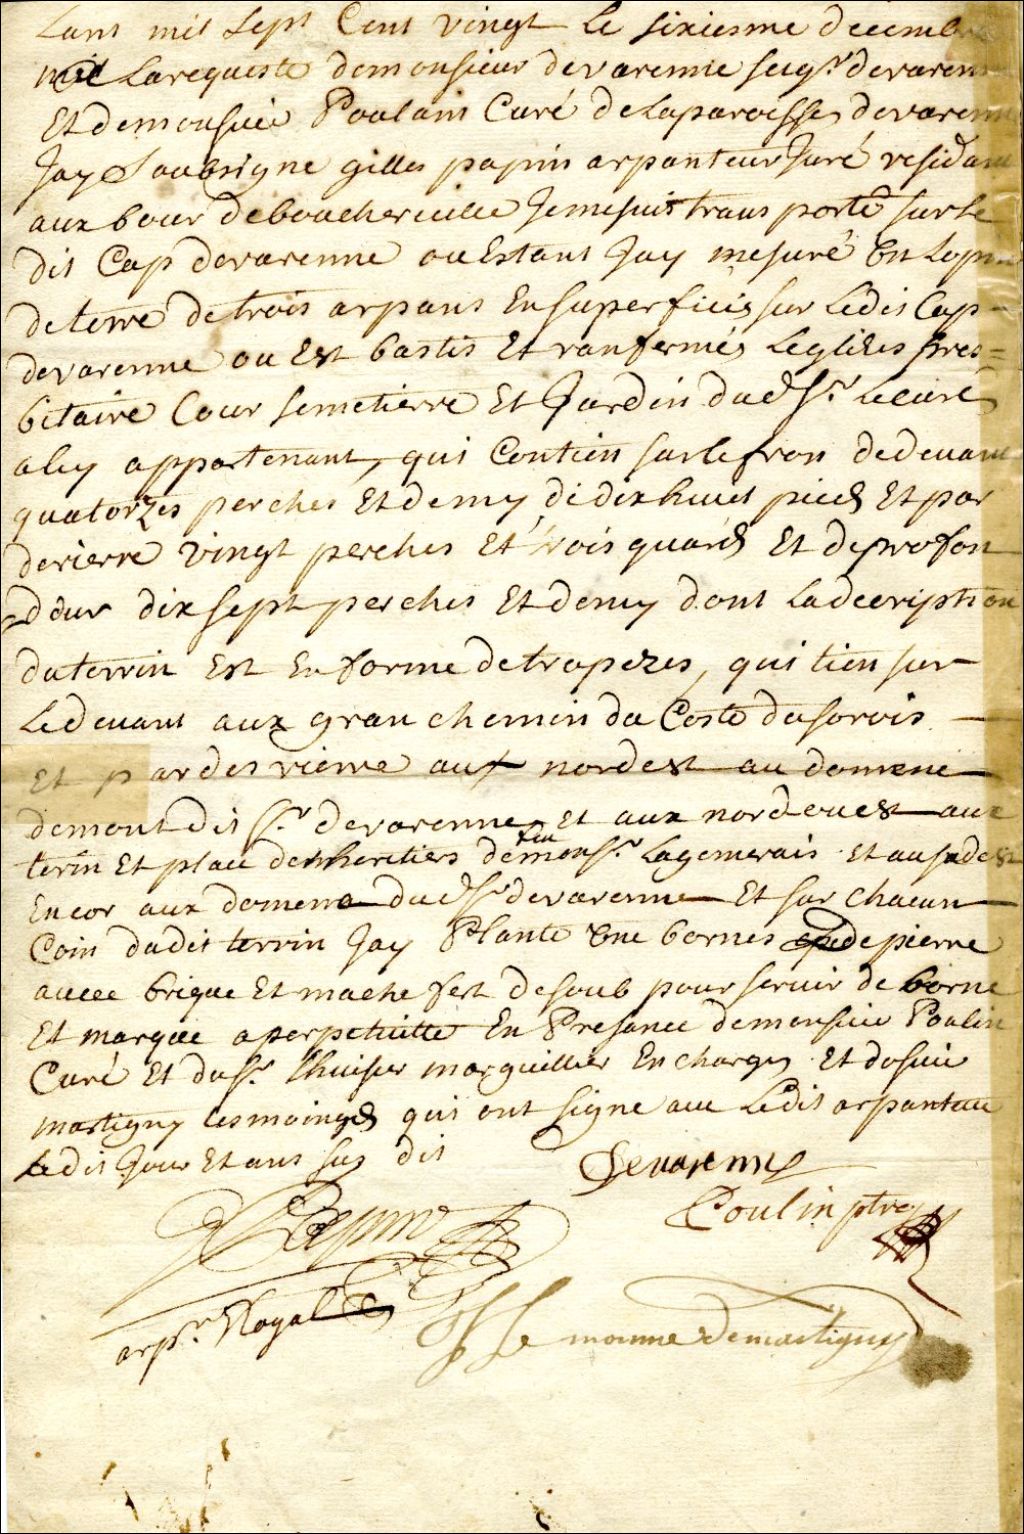 Lans mil Sept Cent vingt Le sixiesme decembre
Larequeste demonsieur devarenne seigr. devarenne
Et demonsieur Poulain Curé delaparoisse devarenne
Jay Soubsigne gilles papin arpanteur Juré residant
aux bour deboucherville Jemesuis trans porté sur le
dit Cap devarenne ou Estans Jay mesuré Un Lopin
deterre detrois arpans En superficies sur Ledit Cap-
devarenne ou Est bastis Et ranfermés Leglises pres=
bitaire Cour semetierre Et Jardin dud Sr. Lecuré
aluy appartenant, qui Contien sur le fron dedevant
quatorzes perches Et demy de dix huit pieds Et par
derierre vingt perches Et trois quards Et de profon
deur dix sept perches Et demy dont La decription
du terrin Est En forme detrapezes, qui tien sur
Ledevant aux gran chemin du Coste dusorois
Et par des rierre aux nordest au domene
demont dit Sr. devarenne Et aux nord ouest aux
terin Et place desheritiers de feu monsr. Lagemerais Et au sudest
Encor aux domene dud Sr devarenne Et sur chacun
Coin dudit terrin Jay Planté Une bornes depierre
avecc brique Et mache fert desoub pour servir de borne
Et marque a perpetuitte En Presance demonsieur Poulin
Curé Et du Sr. Lhuisier marguillier En charges Et dusieur
martigny Lesmoinges qui ont signe avec Ledit arpanteur
Ledit Jour Et ans sus dit
Devarenne
Papin
Poulin ptre
arpr. Royal
Le moinne De martigny